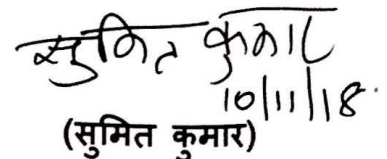 सुमित कुमार
10/11/18
(सुमित कुमार)